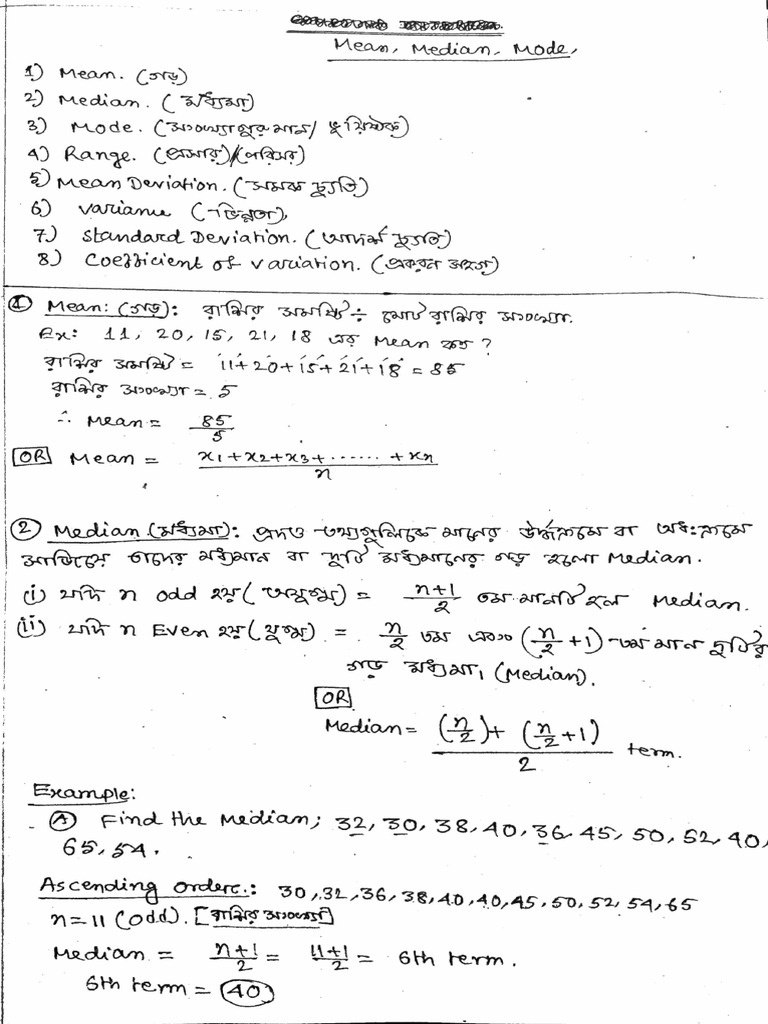 Mean, Median, Mode,
1) Mean. (গড়)
2) Median. (মধ্যমা)
3) Mode. (সংখ্যাগুরুমান/ ভূয়িষ্ঠক)
4) Range. (প্রসার)/(পরিসর)
5) Mean Deviation. (সমক চ্যুতি)
6) Variance (ভিন্নতা),
7) Standard Deviation. (আদর্শ চ্যুতি)
8) Coefficient of variation. (প্রকরন সহগ)
① Mean: (গড়): রাশির সমষ্টি ÷ মোট রাশির সংখ্যা.
Ex: 11, 20, 15, 21, 18 এর Mean কত ?
রাশির সমষ্টি = 11+20+15+21+18 = 85
রাশির সংখ্যা = 5
∴ Mean = 85/5
OR Mean = x1+x2+x3+......+xn/n
② Median (মধ্যমা): প্রদত্ত তথ্যগুলিকে মানের উর্দ্ধক্রমে বা অধঃক্রমে
সাজিয়ে তাদের মধ্যমান বা দুটি মধ্যমানের গড় হলো Median.
(i) যদি n odd হয় (অযুগ্ম) = n+1/2 তম মানটি হল Median.
(ii) যদি n Even হয় (যুগ্ম) = n/2 তম এবং (n/2 + 1)-তম মান দুটির
গড় মধ্যমা। (Median).
OR
Median = (n/2) + (n/2 + 1)/2 term.
Example:
Ⓐ Find the Median; 32, 30, 38, 40, 36, 45, 50, 52, 40,
65, 54.
Ascending order: 30, 32, 36, 38, 40, 40, 45, 50, 52, 54, 65
n = 11 (odd). [রাশির সংখ্যা]
Median = n+1/2 = 11+1/2 = 6th term.
6th term = 40